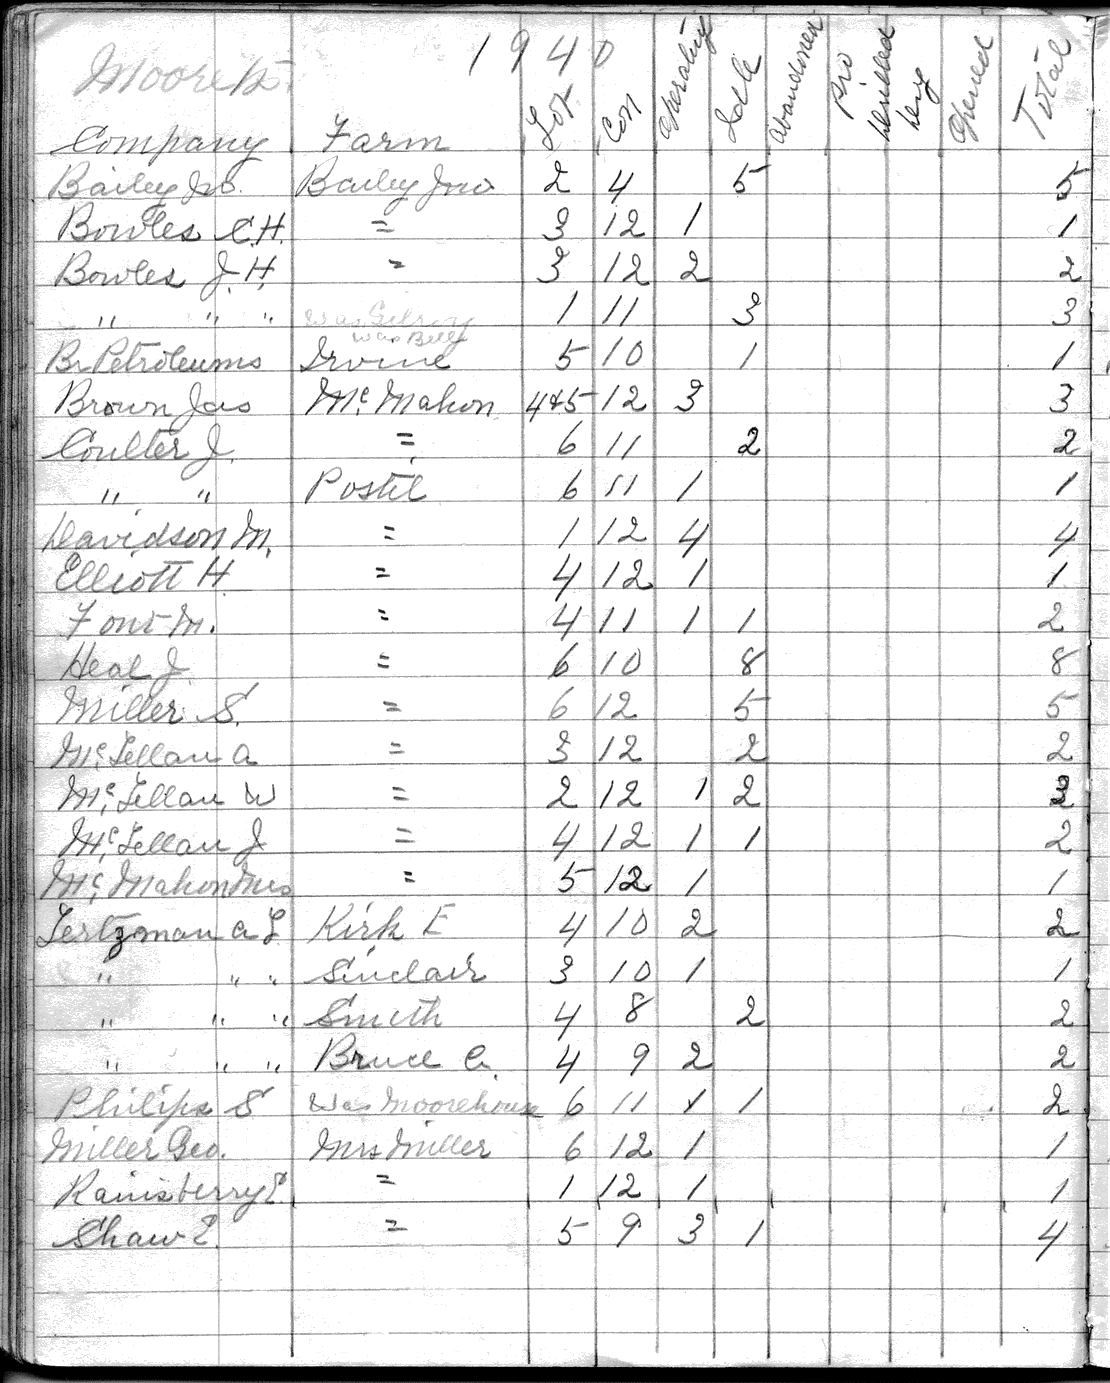 1940
Moore Tp.
Company Farm Lot Con Operating Idle Abandoned Pro Drilled Dry Opened Total
Bailey Jno. Bailey Jno 2 4 5 5
Bowles C.H. = 3 12 1 1
Bowles J.H. = 3 12 2 2
" " " Was Gilroy 1 11 3 3
Was Bell
Br Petroleums Irvine 5 10 1 1
Brown Jas McMahon 4&5 12 3 3
Coulter J. = 6 11 2 2
" " Postil 6 11 1 1
Davidson M. = 1 12 4 4
Elliott H. = 4 12 1 1
M. = 4 11 1 1 2
Heal J. = 6 10 8 8
Miller S. = 6 12 5 5
McLellan A = 3 12 2 2
McLellan W = 2 12 1 2 3
McLellan J = 4 12 1 1 2
McMahon Mrs = 5 12 1 1
Lertzman A L Kirk E 4 10 2 2
" " " Sinclair 3 10 1 1
" " " Smith 4 8 2 2
" " " Bruce G. 4 9 2 2
Philips S Was Moorehouse 6 11 1 1 2
Miller Geo. Mrs Miller 6 12 1 1
Rainsberry E. = 1 12 1 1
Shaw E. = 5 9 3 1 4